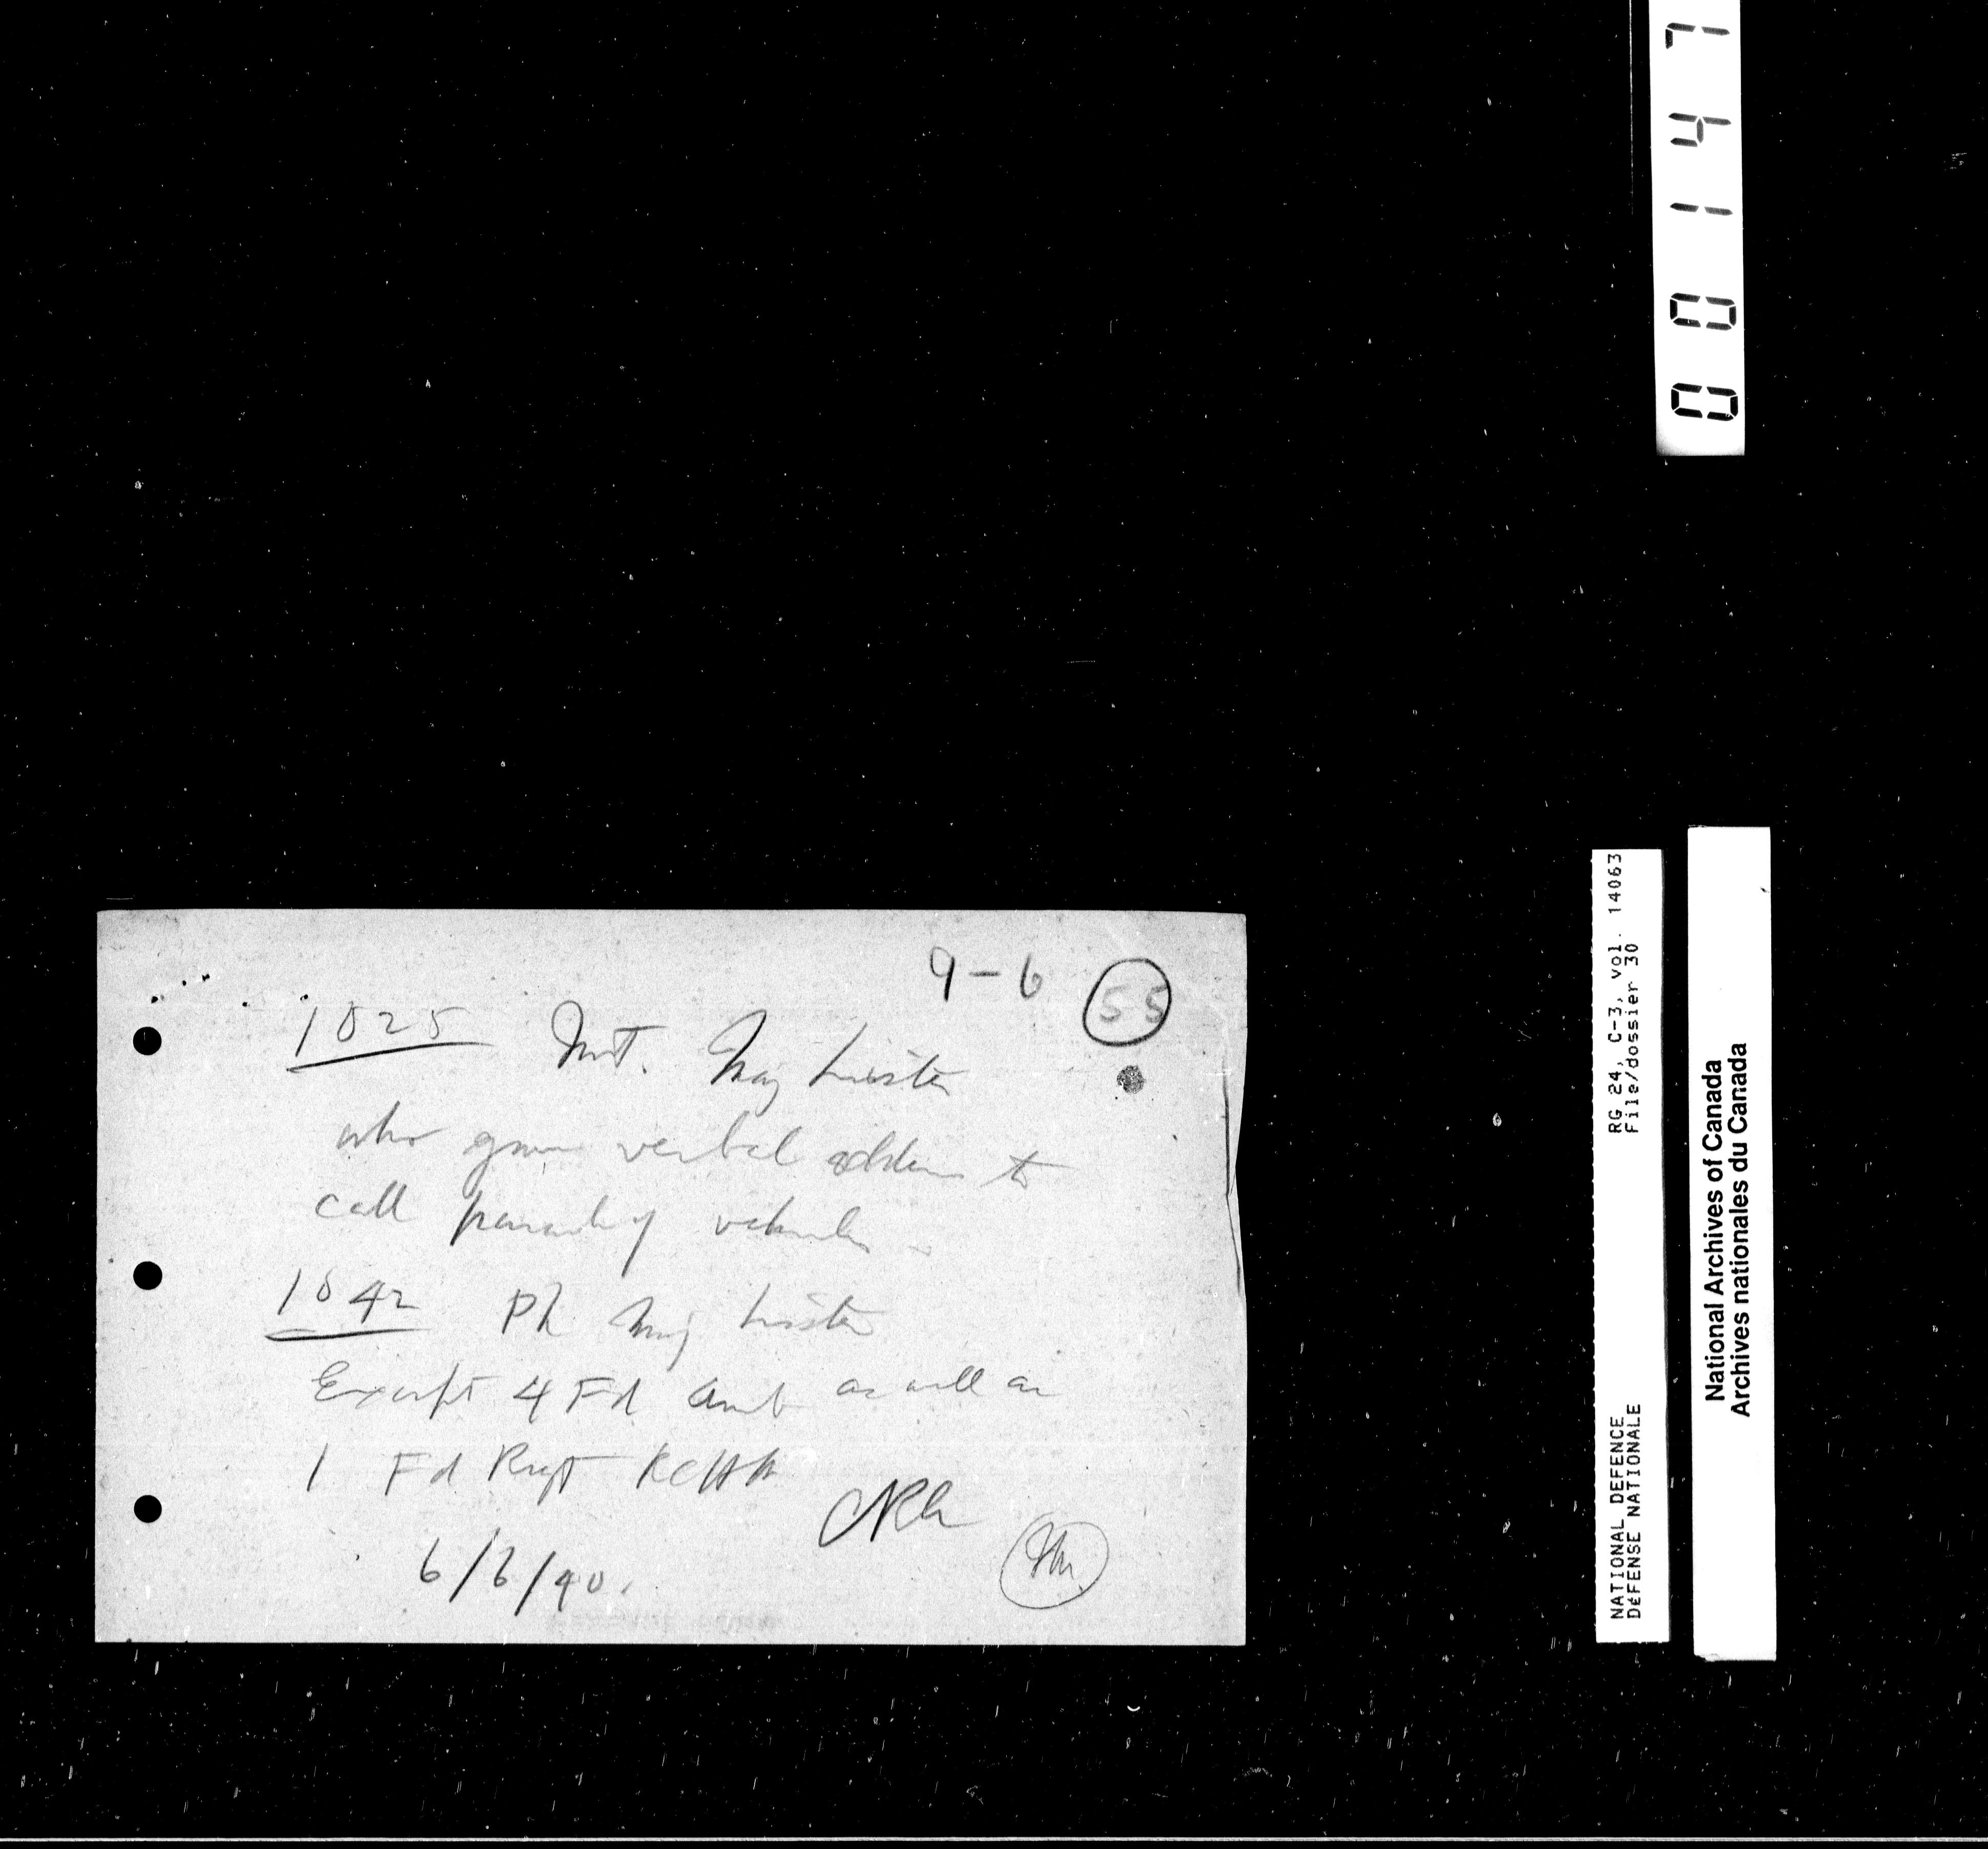 9-6 55
1825 Met. Maj Lister
who gave verbal orders to
call parade of vehicles
1842 Ph Maj Lister
Except 4 Fd Amb as well as
1 Fd Regt RCHA
6/6/40.
00147
RG 24, C-3, vol. 14063
File/dossier 30
NATIONAL DEFENCE
DÉFENSE NATIONALE
National Archives of Canada
Archives nationales du Canada